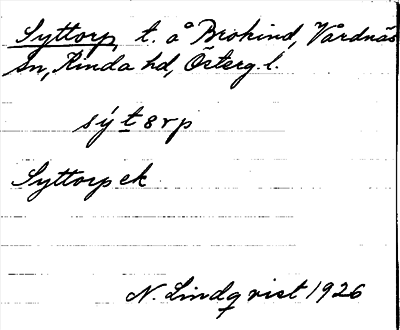 Syttorp, t. å Brokind, Vårdnäs
sn, Kinda hd, Österg. l.
sýtərp
Syttorp ek
N. Lindqvist 1926